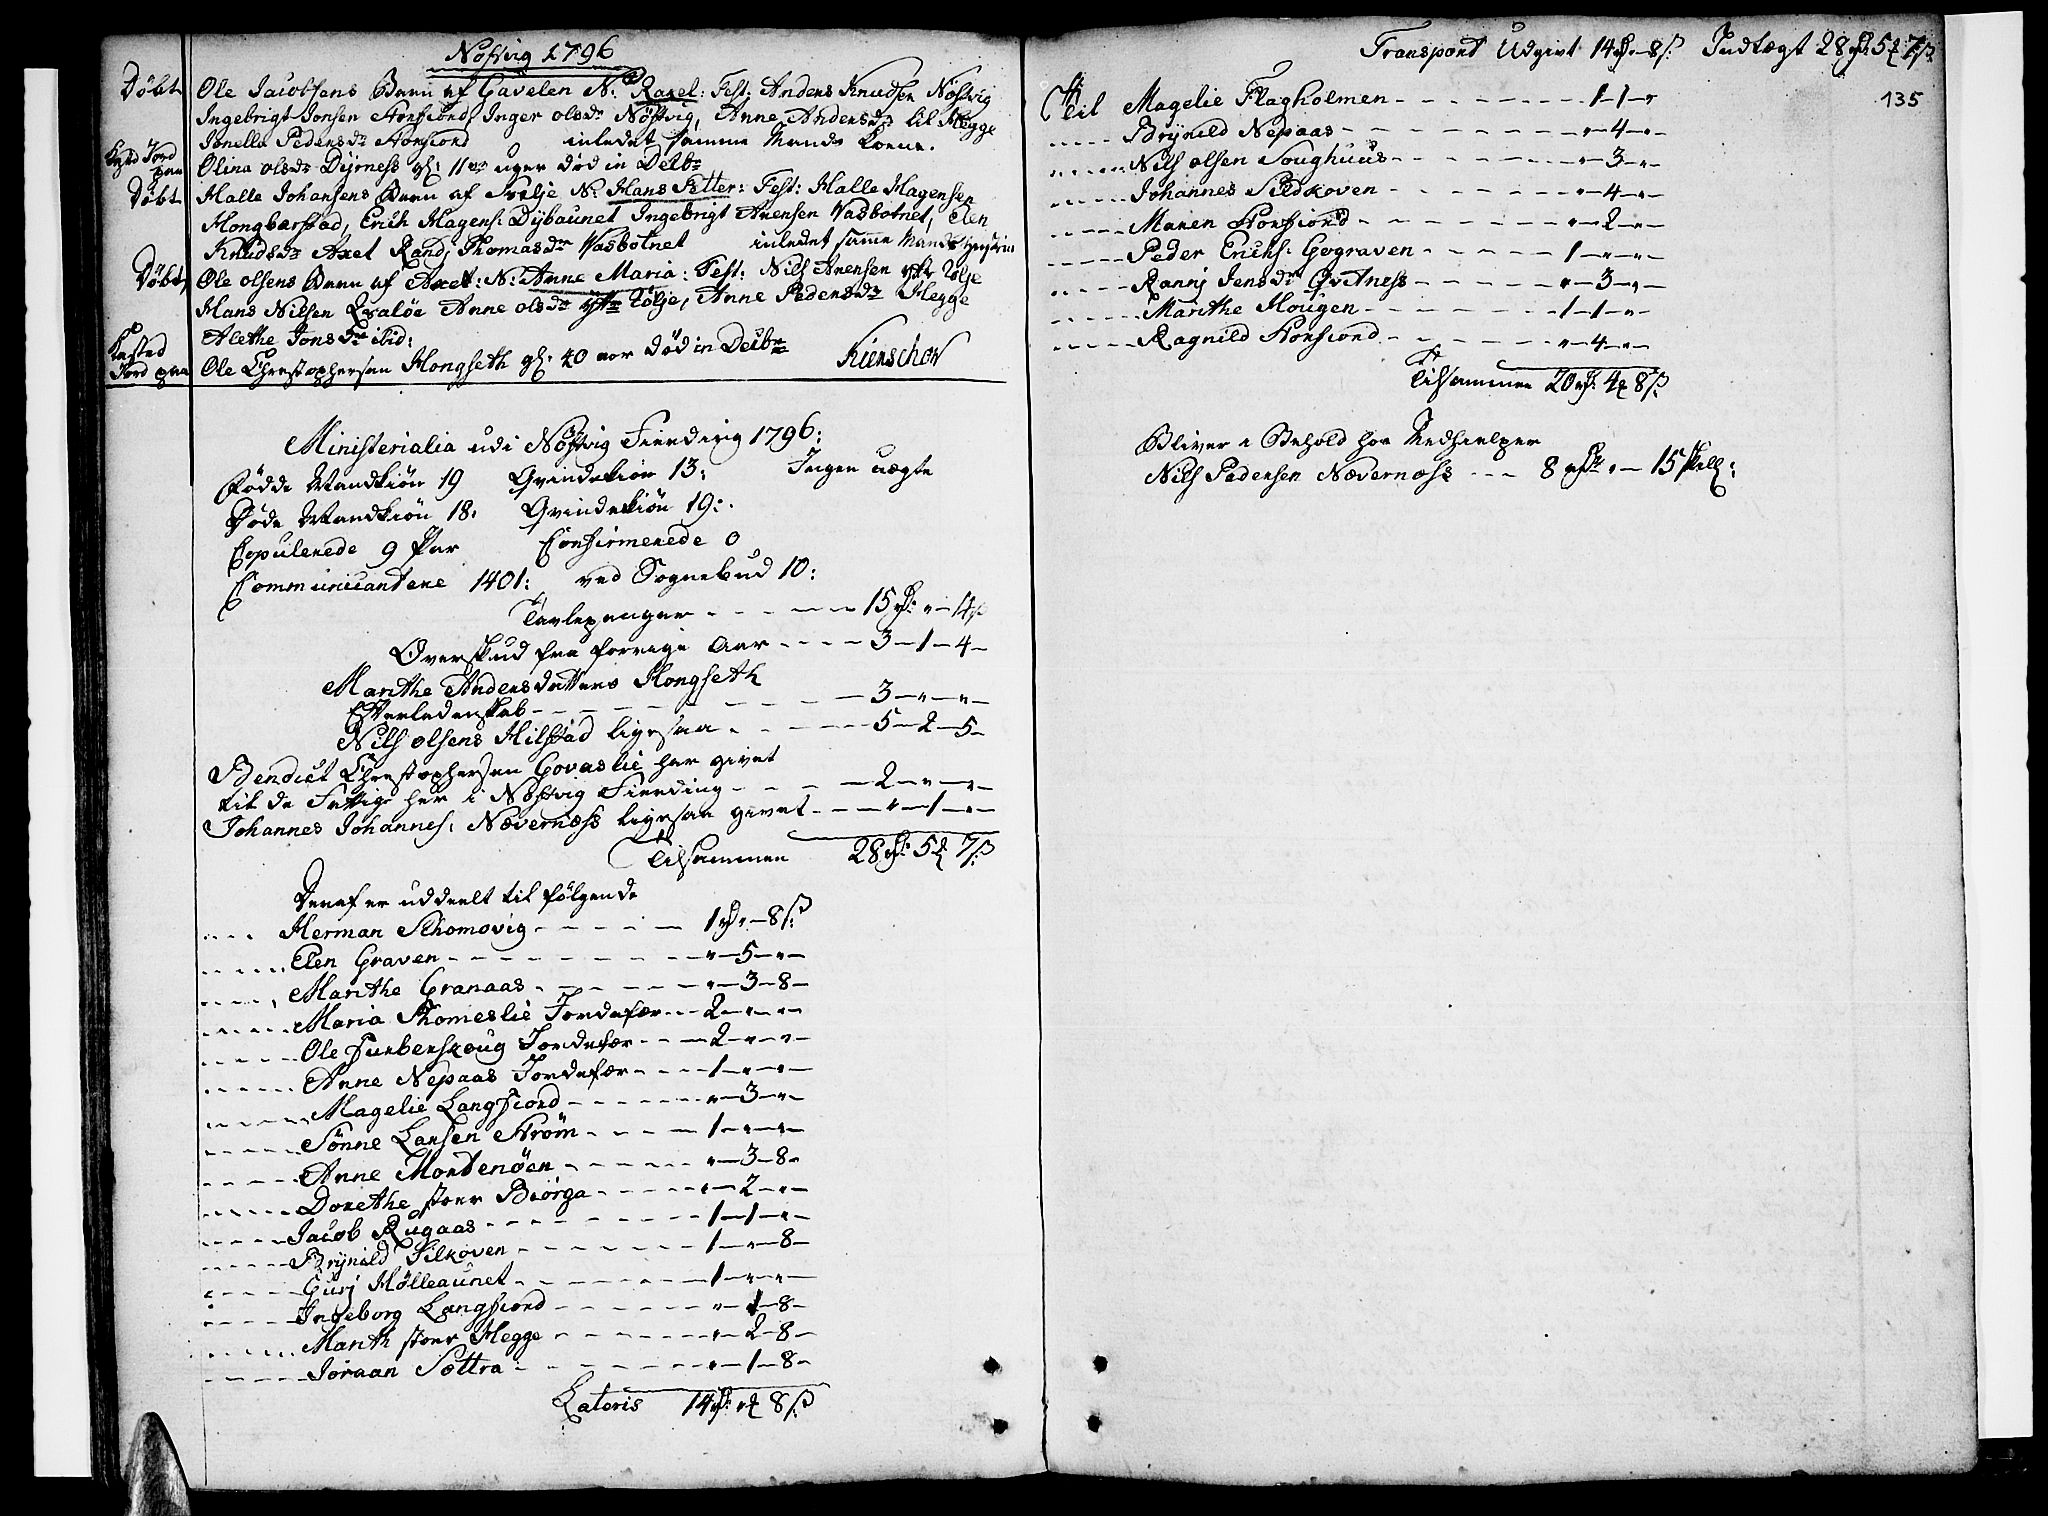 Nøstvig 1796
Døbt Ole Jacobsens Barn af Gavelen N: Raxel: Test: Anders Knudsen Nøstvig
Ingebrigt Jonsen Storfiord, Inger olsdr Nøstvig, Anne Andersdr lil Hegge
Jonella Pedersdr Storfiord inledet samme Mands Kone.
Kasted Jord paa Olina olsdr Dyrness gl: 11 uger død in Decbr
Døbt Halle Johansens Barn af Svelje N: Hans Petter: Test: Halle Hagensen
Hongbarstad, Erich Hagens: Dybaunet Ingebrigt Arensen Vasbotnet, Elen
Knudsdr Axet Randj Thomasdr Vasbotnet inledet samme Mands Hustrue
Døbt Ole olsens Barn af Axet: N: Anne Maria: Test: Nils Arensen yttr Tølje
Hans Nilsen Qvaløe Anne olsdr yttr Tølje, Anne Pedersdr Hegge
Alethe Jonsdr ibid:
Kasted Jord paa Ole Christophersen Hongseth gl: 40 aar død in Decbr Kierschow
Ministerialia udi Nøstvig Fierding 1796:
Fødde Mandkiøn 19 Qvindekiøn 13: Ingen uægte
Døde Mandkiøn 18: Qvindekiøn 19:
Copulerede 9 Par Confirmerede 0
Communicantere 1401: ved Sognebud 10:
Tavlepenger - - - - 15 rd: " - 14 s
Overskud fra forrige Aar - - - - 3 - 1 - 4 -
Marithe Andersdatters Hongseth
Efterladenskab - - - - 3 - " - " -
Nils olsens Hilstad ligesaa - - - - 5 - 2 - 5 -
Bendict Christophersen Govaslie har givet
til de Fattige her i Nøstvig Fierding - - - - 2 - " - " -
Johannes Johannes: Nævernæss ligesaa givet - - - " - 1 - " -
Tilsammen 28 rd: 5 7 s
Deraf er uddeelt til følgende
- - - Herman Thomovig - - - - 1 rd " - 8 s
- - - Elen Graven - - - - " - 5 - " -
- - - Marithe Granaas - - - - " - 3 - 8 -
- - - Maria Thomeslie Jordefær - - - 2 - " - " -
- - - Ole Furberskoug Jordefær - - - 2 - " - " -
- - - Anne Nepaas Jordefær - - - 1 - " - " -
- - - Magelie Langfiord - - - - " - 3 - " -
- - - Sønne Larsen Strøm - - - - 1 - " - " -
- - - Anne Mortenøen - - - - " - 3 - 8 -
- - - Dorethe stoer Biørga - - - - " - 2 - " -
- - - Jacob Rugaas - - - - 1 - 1 - " -
- - - Brynild Silkoven - - - - 1 - " - 8 -
- - - Gurj Mølleaunet - - - - 1 - " - " -
- - - Ingeborg Langfiord - - - - " - 1 - 8 -
- - - Marith stoer Hegge - - - - " - 2 - 8 -
- - - Joraan Sættra - - - - " - 1 - 8 -
Lateris 14 rd: " 8 s
Transport Udgivt 14 rd " 8 s Indtægt 28 rd 5 7 s
135
Til Magelie Flagholmen - - - - 1 - 1 - "
- - - Brynild Nepaas - - - - " - 4 - " -
- - - Nils olsen Soughuus - - - - " - 3 - " -
- - - Johannes Sildkoven - - - - " - 4 - " -
- - - Maren Storfiord - - - - " - 2 - " -
- - - Peder Erichs: Gograven - - - - 1 - " - " -
- - - Rannj Jensdr Qvitness - - - - " - 3 - " -
- - - Marithe Hougen - - - - 1 - 1 - " -
- - - Ragnild Storfiord - - - - " - 4 - " -
Tilsammen 20 rd: 4 8 s
Bliver i Behold hos Medhielper
Nils Pedersen Nævernæss - - - 8 rd " - 15 skell: